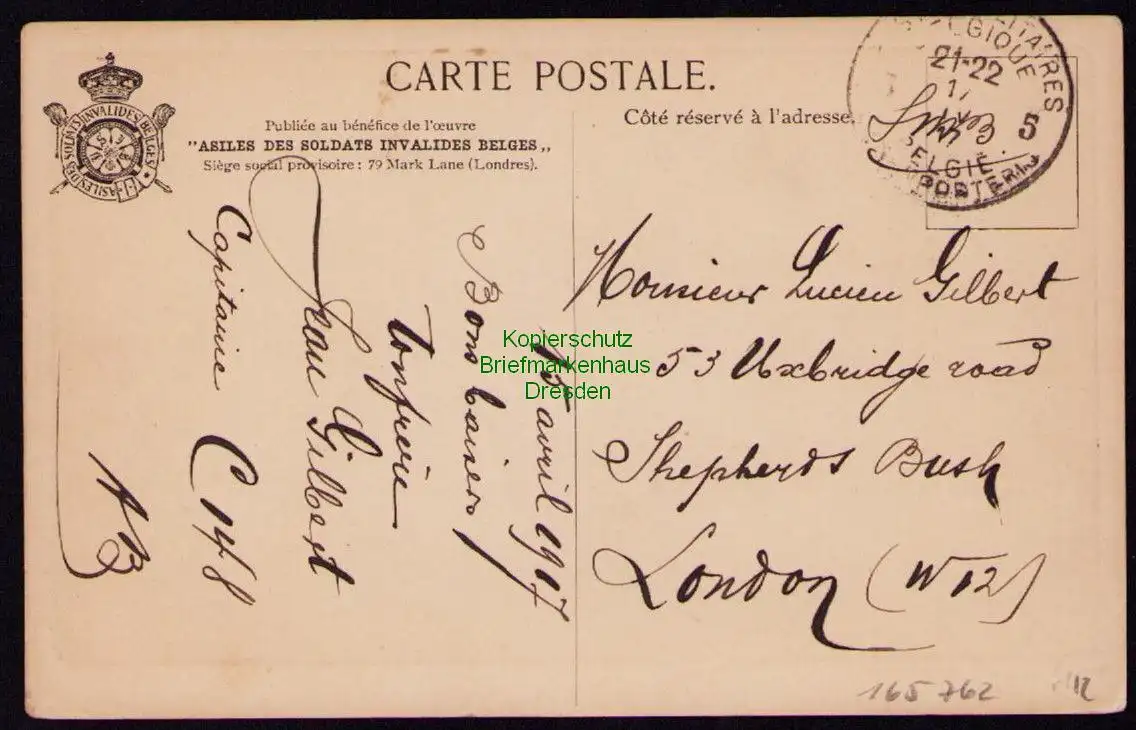 CARTE POSTALE.
Publiée au bénéfice de l'œuvre
"ASILES DES SOLDATS INVALIDES BELGES„
Siège social provisoire : 79 Mark Lane (Londres).
ASILES DES SOLDATS INVALIDES BELGES
Côté réservé à l'adresse.
BELGIQUE
21-22
5
BELGIË
15 avril 1917
Bons baisers
Ton frère
Jean Gilbert
Capitaine C 148
AB
Monsieur Lucien Gilbert
53 Uxbridge road
Shepherds Bush
London (W12)
165762
Kopierschutz
Briefmarkenhaus
Dresden